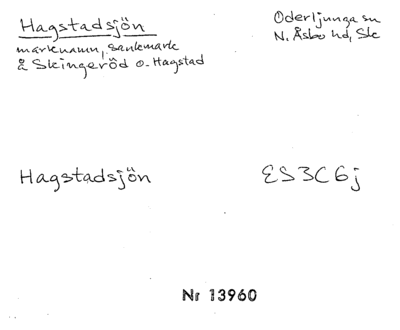 Hagstadsjön
marknamn, sankmark
å Skingeröd o. Hagstad
Oderljunga sn
N. Åsbo hd, Sk
Hagstadsjön
ES3C6j
Nr 13960